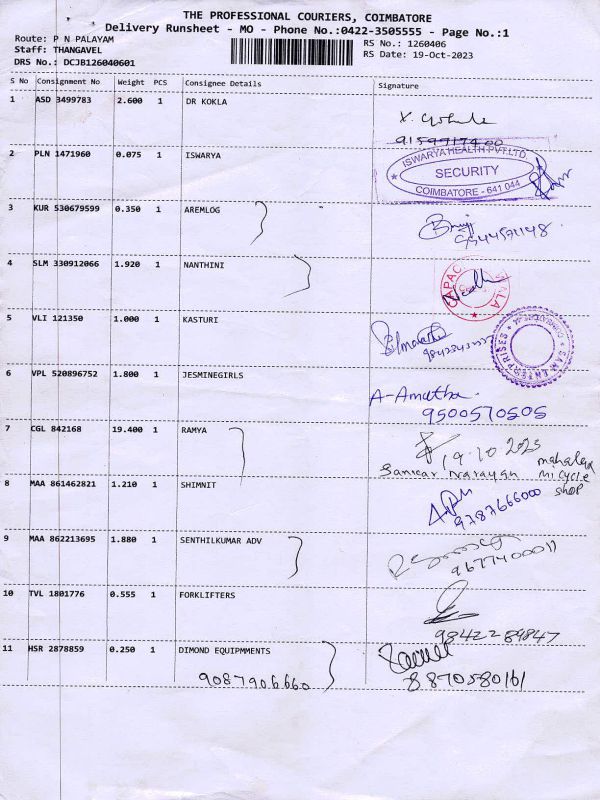 THE PROFESSIONAL COURIERS, COIMBATORE
Delivery Runsheet - MO - Phone No.:0422-3505555 - Page No.:1
Route: P N PALAYAM
RS No.: 1260406
Staff: THANGAVEL
RS Date: 19-Oct-2023
DRS No.: DCJB126040601
S No Consignment No Weight PCS Consignee Details Signature
1 ASD 3499783 2.600 1 DR KOKLA
9159917400
2 PLN 1471960 0.075 1 ISWARYA
ISWARYA HEALTH PVT.LTD.
SECURITY
COIMBATORE - 641 044
3 KUR 530679599 0.350 1 AREMLOG
4 SLM 330912066 1.920 1 NANTHINI
5 VLI 121350 1.000 1 KASTURI
6 VPL 520896752 1.800 1 JESMINEGIRLS
A-Amutha
9500570505
7 CGL 842168 19.400 1 RAMYA
19.10 2023
Sankar Narayan
shop
8 MAA 861462821 1.210 1 SHIMNIT
9787666000
9 MAA 862213695 1.880 1 SENTHILKUMAR ADV
9677400011
10 TVL 1801776 0.555 1 FORKLIFTERS
9842289847
11 HSR 2878859 0.250 1 DIMOND EQUIPMMENTS
9087906660
8870580161